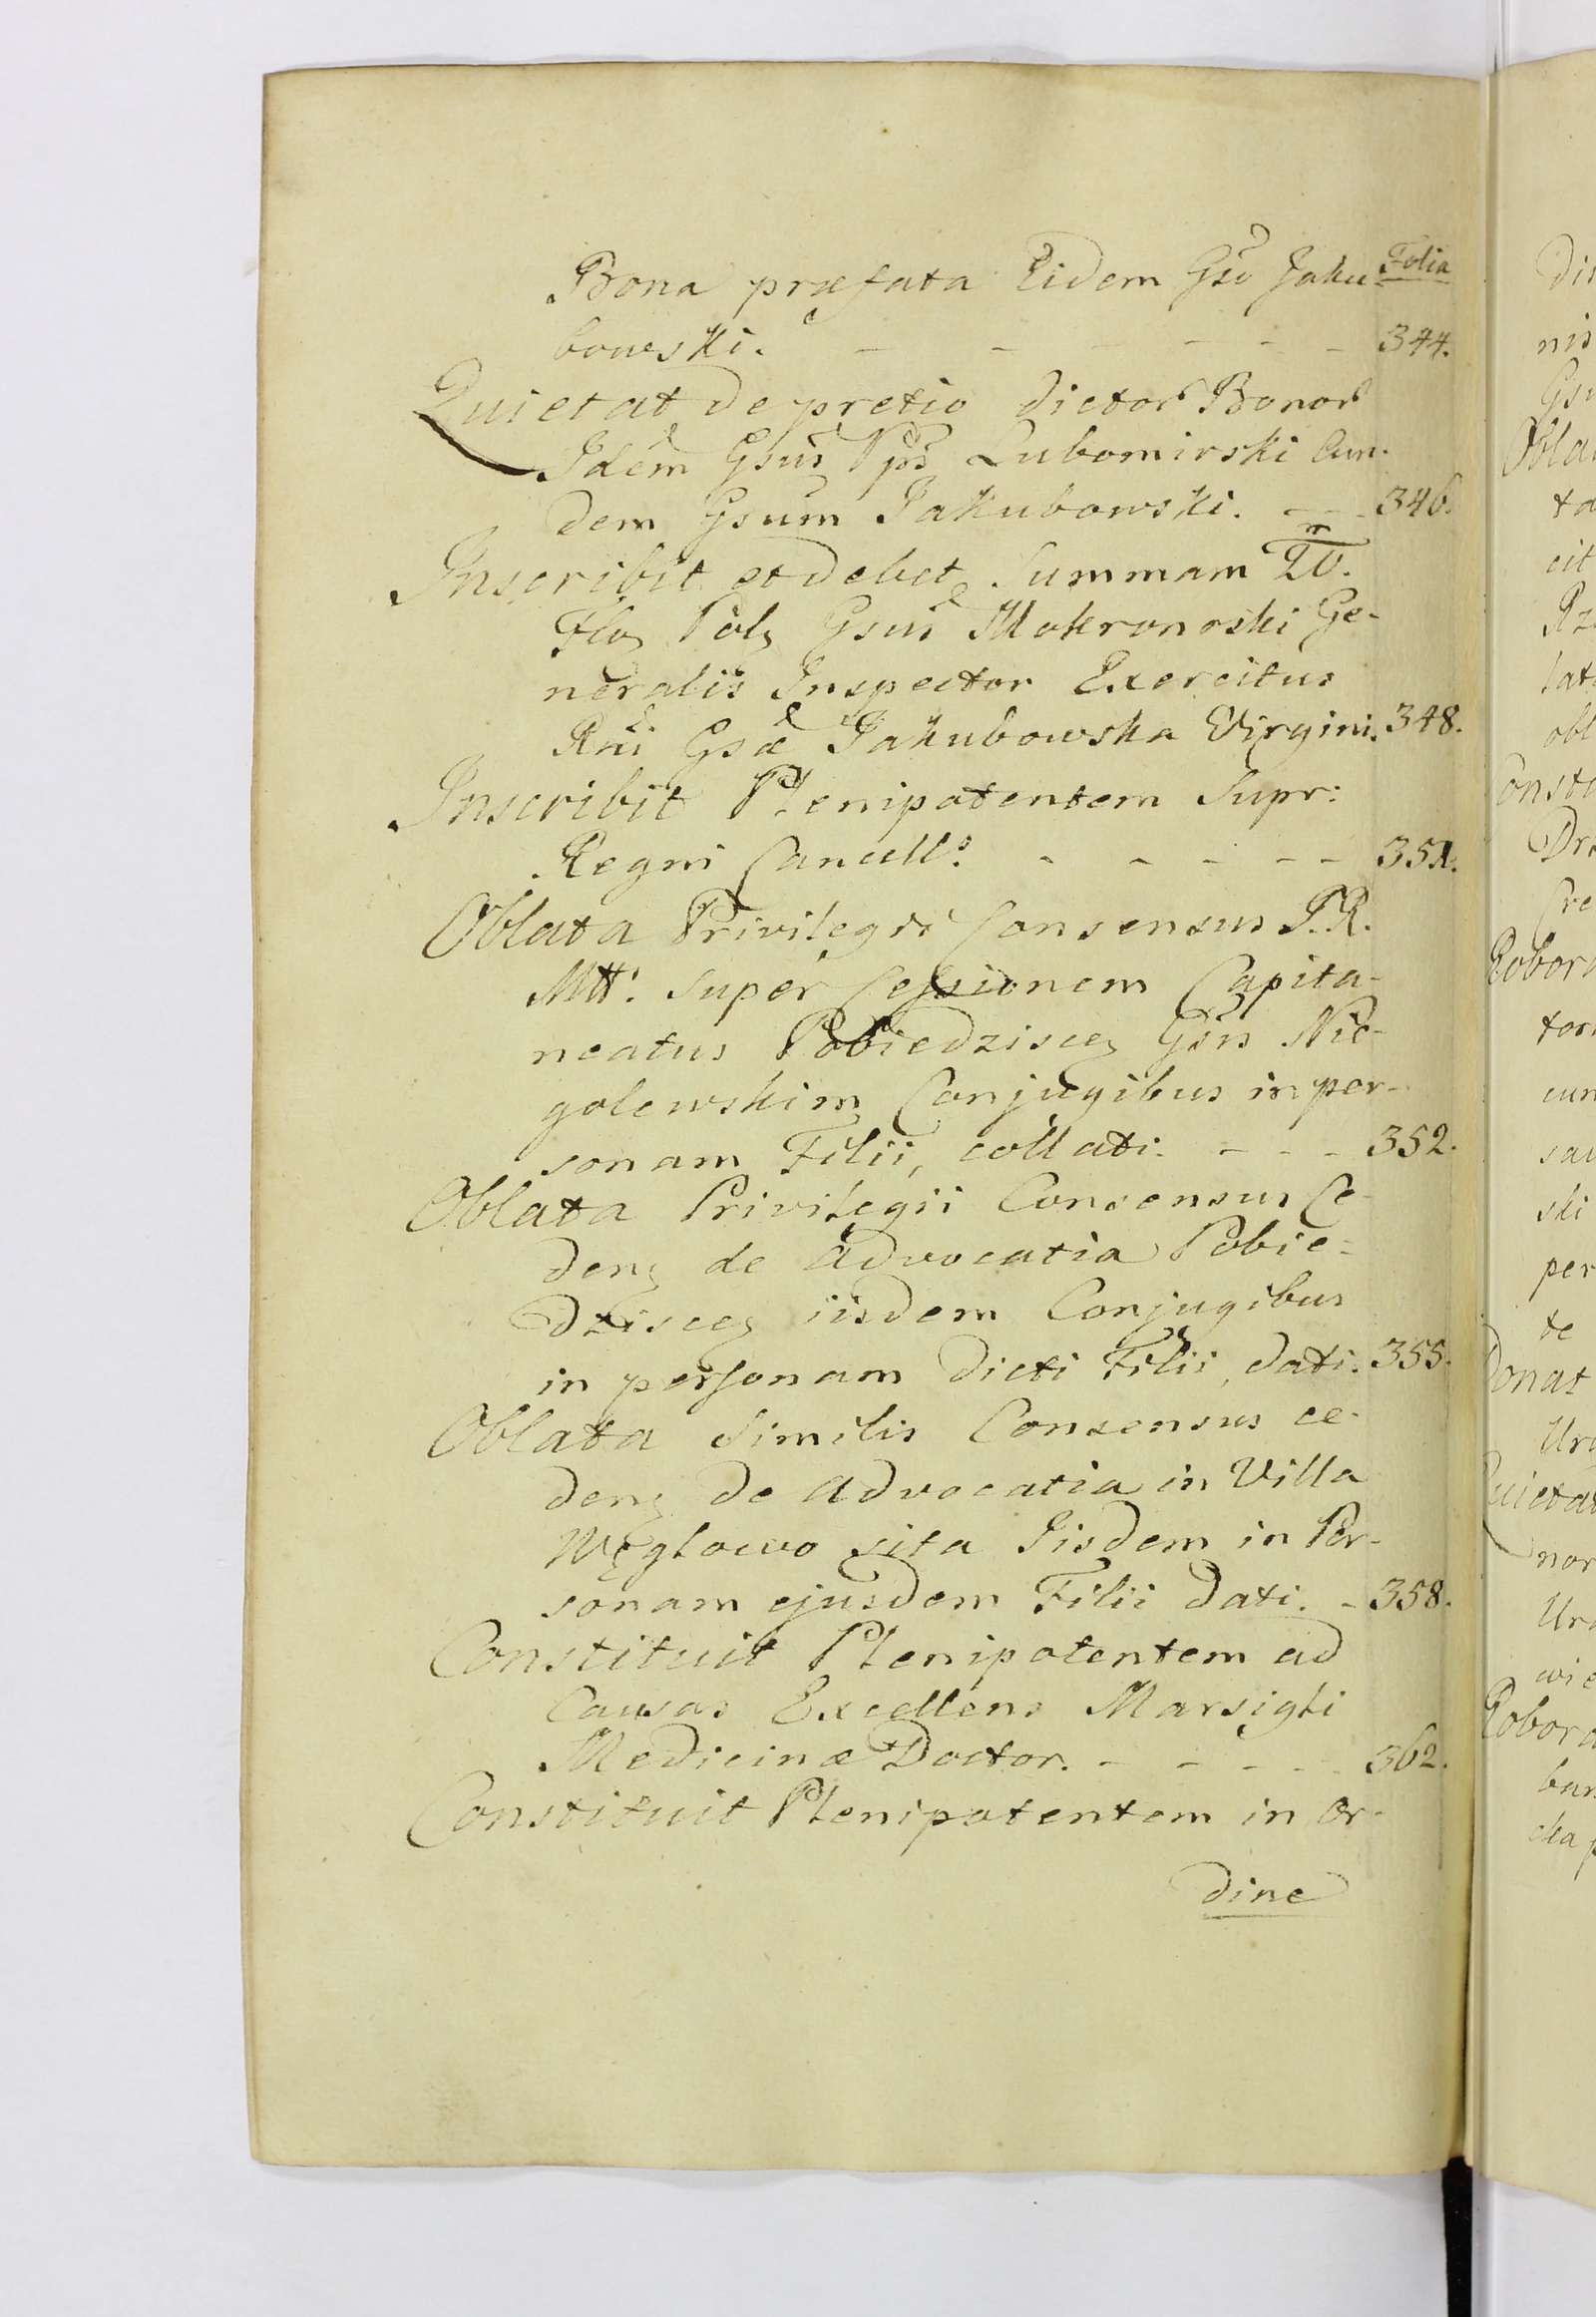 Folia
Bona præfata Eidem Gso Jaku
bowski. - - - - - - 344.
Quietat de pretio dictor Bonor
Idem Gsus Nps Lubomirski Eun-
dem Gsum Jakubowski. - - 346.
Inscribit et debet Summam
Flo Pol Gsus Mokronoski Ge-
neralis Inspector Exercitus
Rni Gsæ Jakubowska Virgini. 348.
Inscribit Plenipotentem Supr:
Regni Cancell. - - - - - 351.
Oblata Privilegii Consensus S. R.
Mtt. super Cessionem Capita-
neatus Pobiedzisce Gsis Nie-
golewskim Conjugibus in per-
sonam Filii, collati. - - - 352.
Oblata Privilegii Consensus Ce-
den de Advocatia Pobie-
dzisce iisdem Conjugibus
in personam dicti Filii, dati. 355.
Oblata Similis Consensus ce-
den de Advocatia in Villa
Węglowo sita Iisdem in Per-
sonam ejusdem Filii dati. - 358.
Constituit Plenipotentem ad
Causas Excellens Marsigli
Medicinæ Doctor. - - - - 362.
Constituit Plenipotentem in Or-
dine